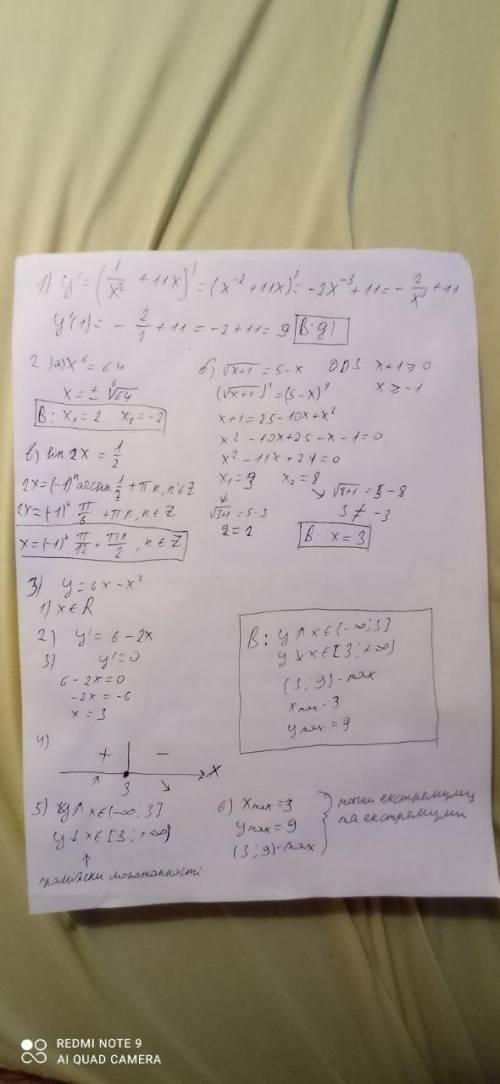 1) y' = (1/x² + 11x)' = (x⁻² + 11x)' = -2x⁻³ + 11 = - 2/x³ + 11
y'(1) = - 2/1 + 11 = -2 + 11 = 9 В: g)
2. а) x⁶ = 64
x = ± ⁶√64
В: x₁ = 2 x₂ = -2
б) √x+1 = 5 - x ОДЗ: x+1 ≥ 0
(√x+1)² = (5-x)² x ≥ -1
x+1 = 25 - 10x + x²
x² - 10x + 25 - x - 1 = 0
x² - 11x + 24 = 0
x₁ = 3 x₂ = 8
↓ ↘ √8+1 = 5 - 8
√3+1 = 5-3 3 ≠ -3
2 = 2 В: x = 3
в) sin 2x = 1/2
2x = (-1)ⁿ arcsin 1/2 + πn, n ∈ Z
2x = (-1)ⁿ π/6 + πn, n ∈ Z
x = (-1)ⁿ π/12 + πn/2, n ∈ Z
3) y = 6x - x²
1) x ∈ R
2) y' = 6 - 2x
3) y' = 0
6 - 2x = 0
-2x = -6
x = 3
В: y ↑ x ∈ (-∞; 3]
y ↓ x ∈ [3; +∞)
(3; 9) - max
xmax = 3
ymax = 9
4)
+ −
3 x
5) y ↑ x ∈ (-∞; 3]
y ↓ x ∈ [3; +∞)
↑
проміжки монотонності
6) xmax = 3
ymax = 9
(3; 9) - max
точки екстремуму
та екстремуми
REDMI NOTE 9
AI QUAD CAMERA